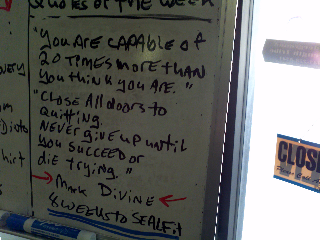 Quotes of the week
"You are capable of
20 times more than
you think you are."
"Close All doors to
Quitting.
Never give up until
you succeed or
die trying."
Mark Divine
8 weeks to SEALFit
CLOS